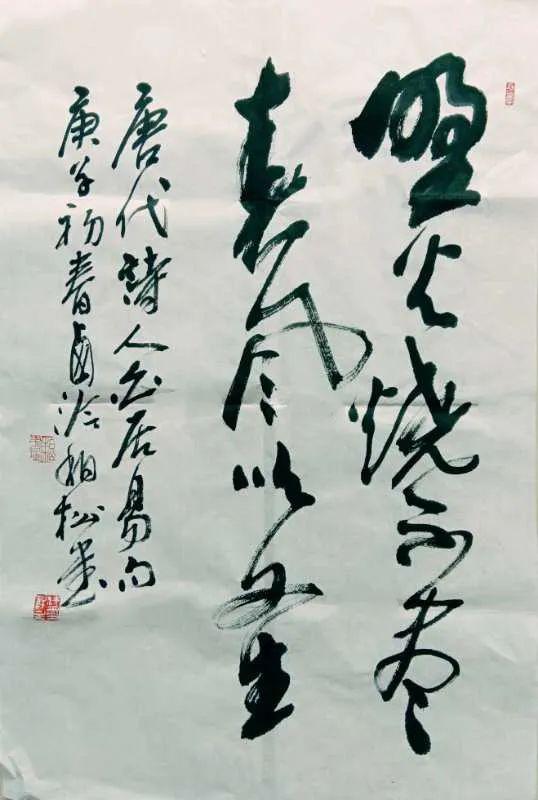 野火烧不尽
春风吹又生
唐代詩人白居易句
庚子初春柏松書